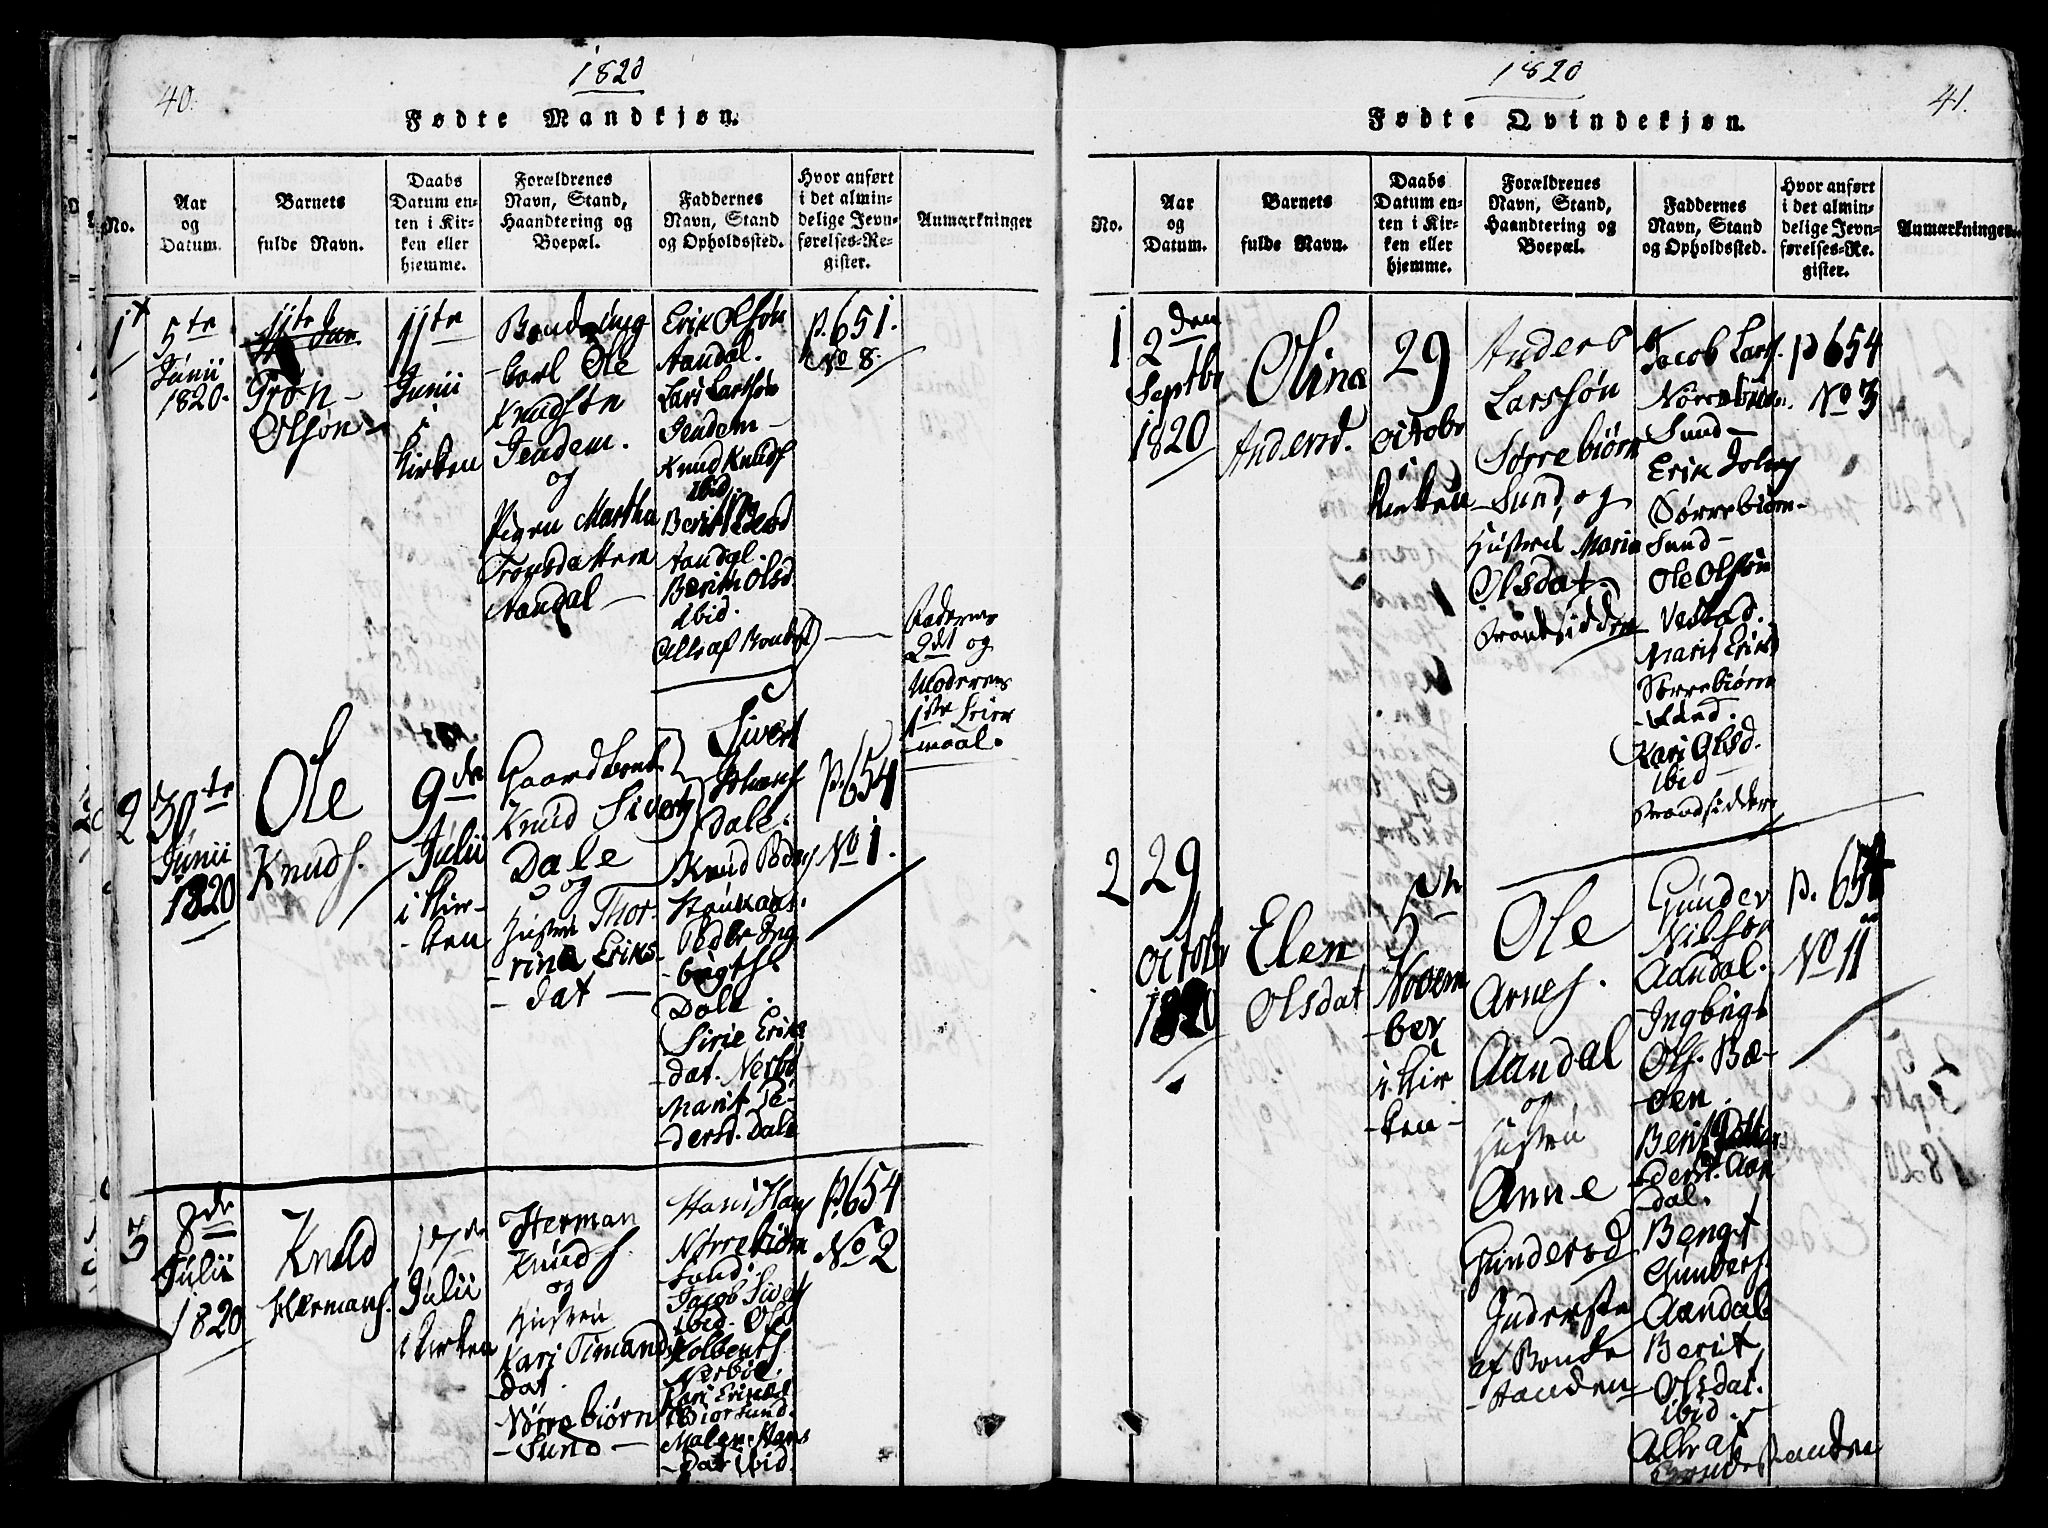 40.
1820
Fødte Mandkjøn.
No.
Aar
og
Datum.
Barnets
fulde Navn.
Daabs
Datum en-
ten i Kir-
ken eller
hjemme.
Forældrenes
Navn, Stand,
Haandtering og
Boepæl.
Faddernes
Navn, Stand
og Opholdssted.
Hvor anført
i det almin-
delige Jevn-
førelses-Re-
gister.
Anmærkninger
1
5te
Junii
1820.
Tron
Olsøn
11te
Junii
i
Kirken
Ole
Knudsøn
Jendem.
og
Pigen Martha
Tronsdatter
Aandal
Erik Olsøn
Aandal.
Lars Larssøn
Jendem
Knud Knuds
ibid.
Aandal.
Berith Olsd
ibid.
p. 651.
No 8.
Faderens
2det og
Moderens
1ste Leier
-maal.
2
30te
Junii
1820
Ole
Knuds.
9de
Julii
i Kir-
-ken
Gaardbond
Knud Siverts
Dale
og
Hustru Thor-
-rine Eriks
-dat
Sivert
Johans
Dale.
Knud Peders
Peder Ing
-brigts.
Dale.
Sirie Eriks
-dat. Nerbø
Marit Pe-
-dersd. Dale
p. 654
No 1.
3
8de
Julii
1820
Knud
Hermans.
17de
Julii
i Kirken
Herman
Knuds.
og
Hustru
Kari Timands
dat.
Nørrebiørn
-Sund
Hans Hans
Nørrebiørn
Sund.
Jacob Sivert
ibid. Ole
Kolbents
Nerbøe.
Kari Eriksd
Biorsund.
Malen Hans
-dat ibid.
p. 654
No 2
1820
41.
Fødte Qvindekjøn.
No.
Aar
og
Datum.
Barnets
fulde Navn.
Daabs
Datum en-
ten i Kir-
ken eller
hjemme.
Forældrenes
Navn, Stand,
Haandtering og
Boepæl.
Faddernes
Navn, Stand
og Opholdssted.
Hvor anført
i det almin-
delige Jevn-
førelses-Re-
gister.
Anmærkninger
1
2den
Septbr
1820
Olina
Andersd.
29
Octobr
i
Kirken
Anders
Larssøn
Sørrebiørn
-Sund, og
Hustrue Maria
Olsdat.
Strandsidder
Jacob Lars.
Nørrebiørn
Sund
Erik Johns
Sørrebiørn-
Sund-
Ole Olsøn
Vestad.
Marit Eriks
Sørrebiørn
-Sund.
Kari Olsd.
ibid
Strandsiddere
p 654
No 3
2
29
Octobr
1820
Elen
Olsdat
5te
Novem
-ber
i Kir
-ken-
Ole
Arnes.
Aandal
og
Hustru
Anne
Gundersd
Inderste
af Bonde
Standen
Gunder
Nilsøn
Aandal.
Ingbrigt
Ols. Bæ-
-øen.
Berit
Aan
dal.
Bengt
Gunders.
Aandal
Berit
Olsdat.
ibid.
Alle af
Bondestanden
p. 654
No 11